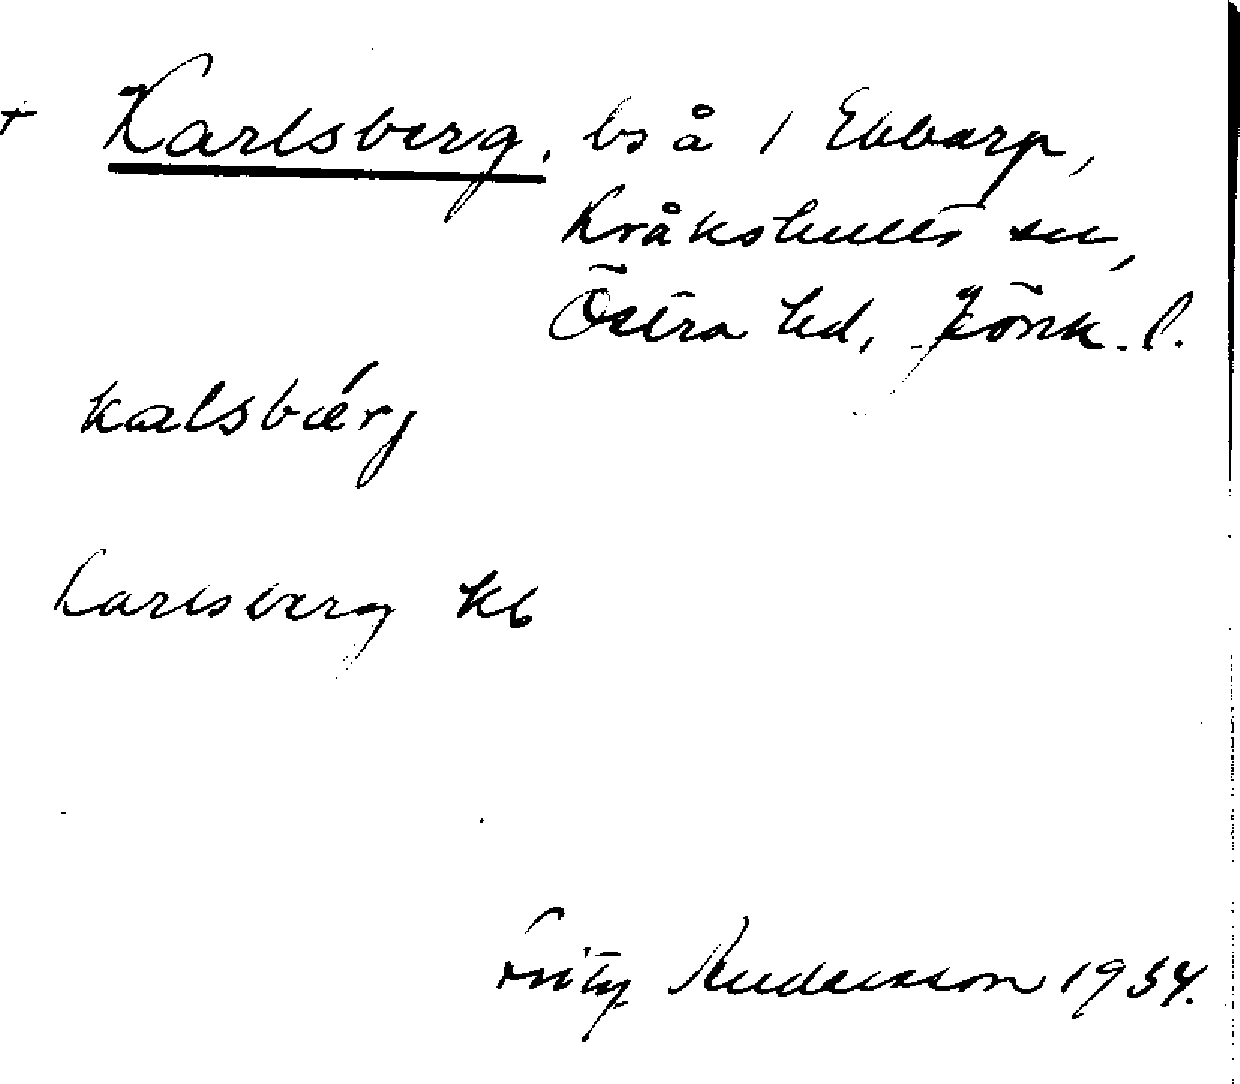 + Karlsberg, bs å 1 Ebbarp,
Kråkshults sn,
Östra hd, Jönk. l.
kalsbærj
Karlsberg kb
Fritz Andersson 1934.